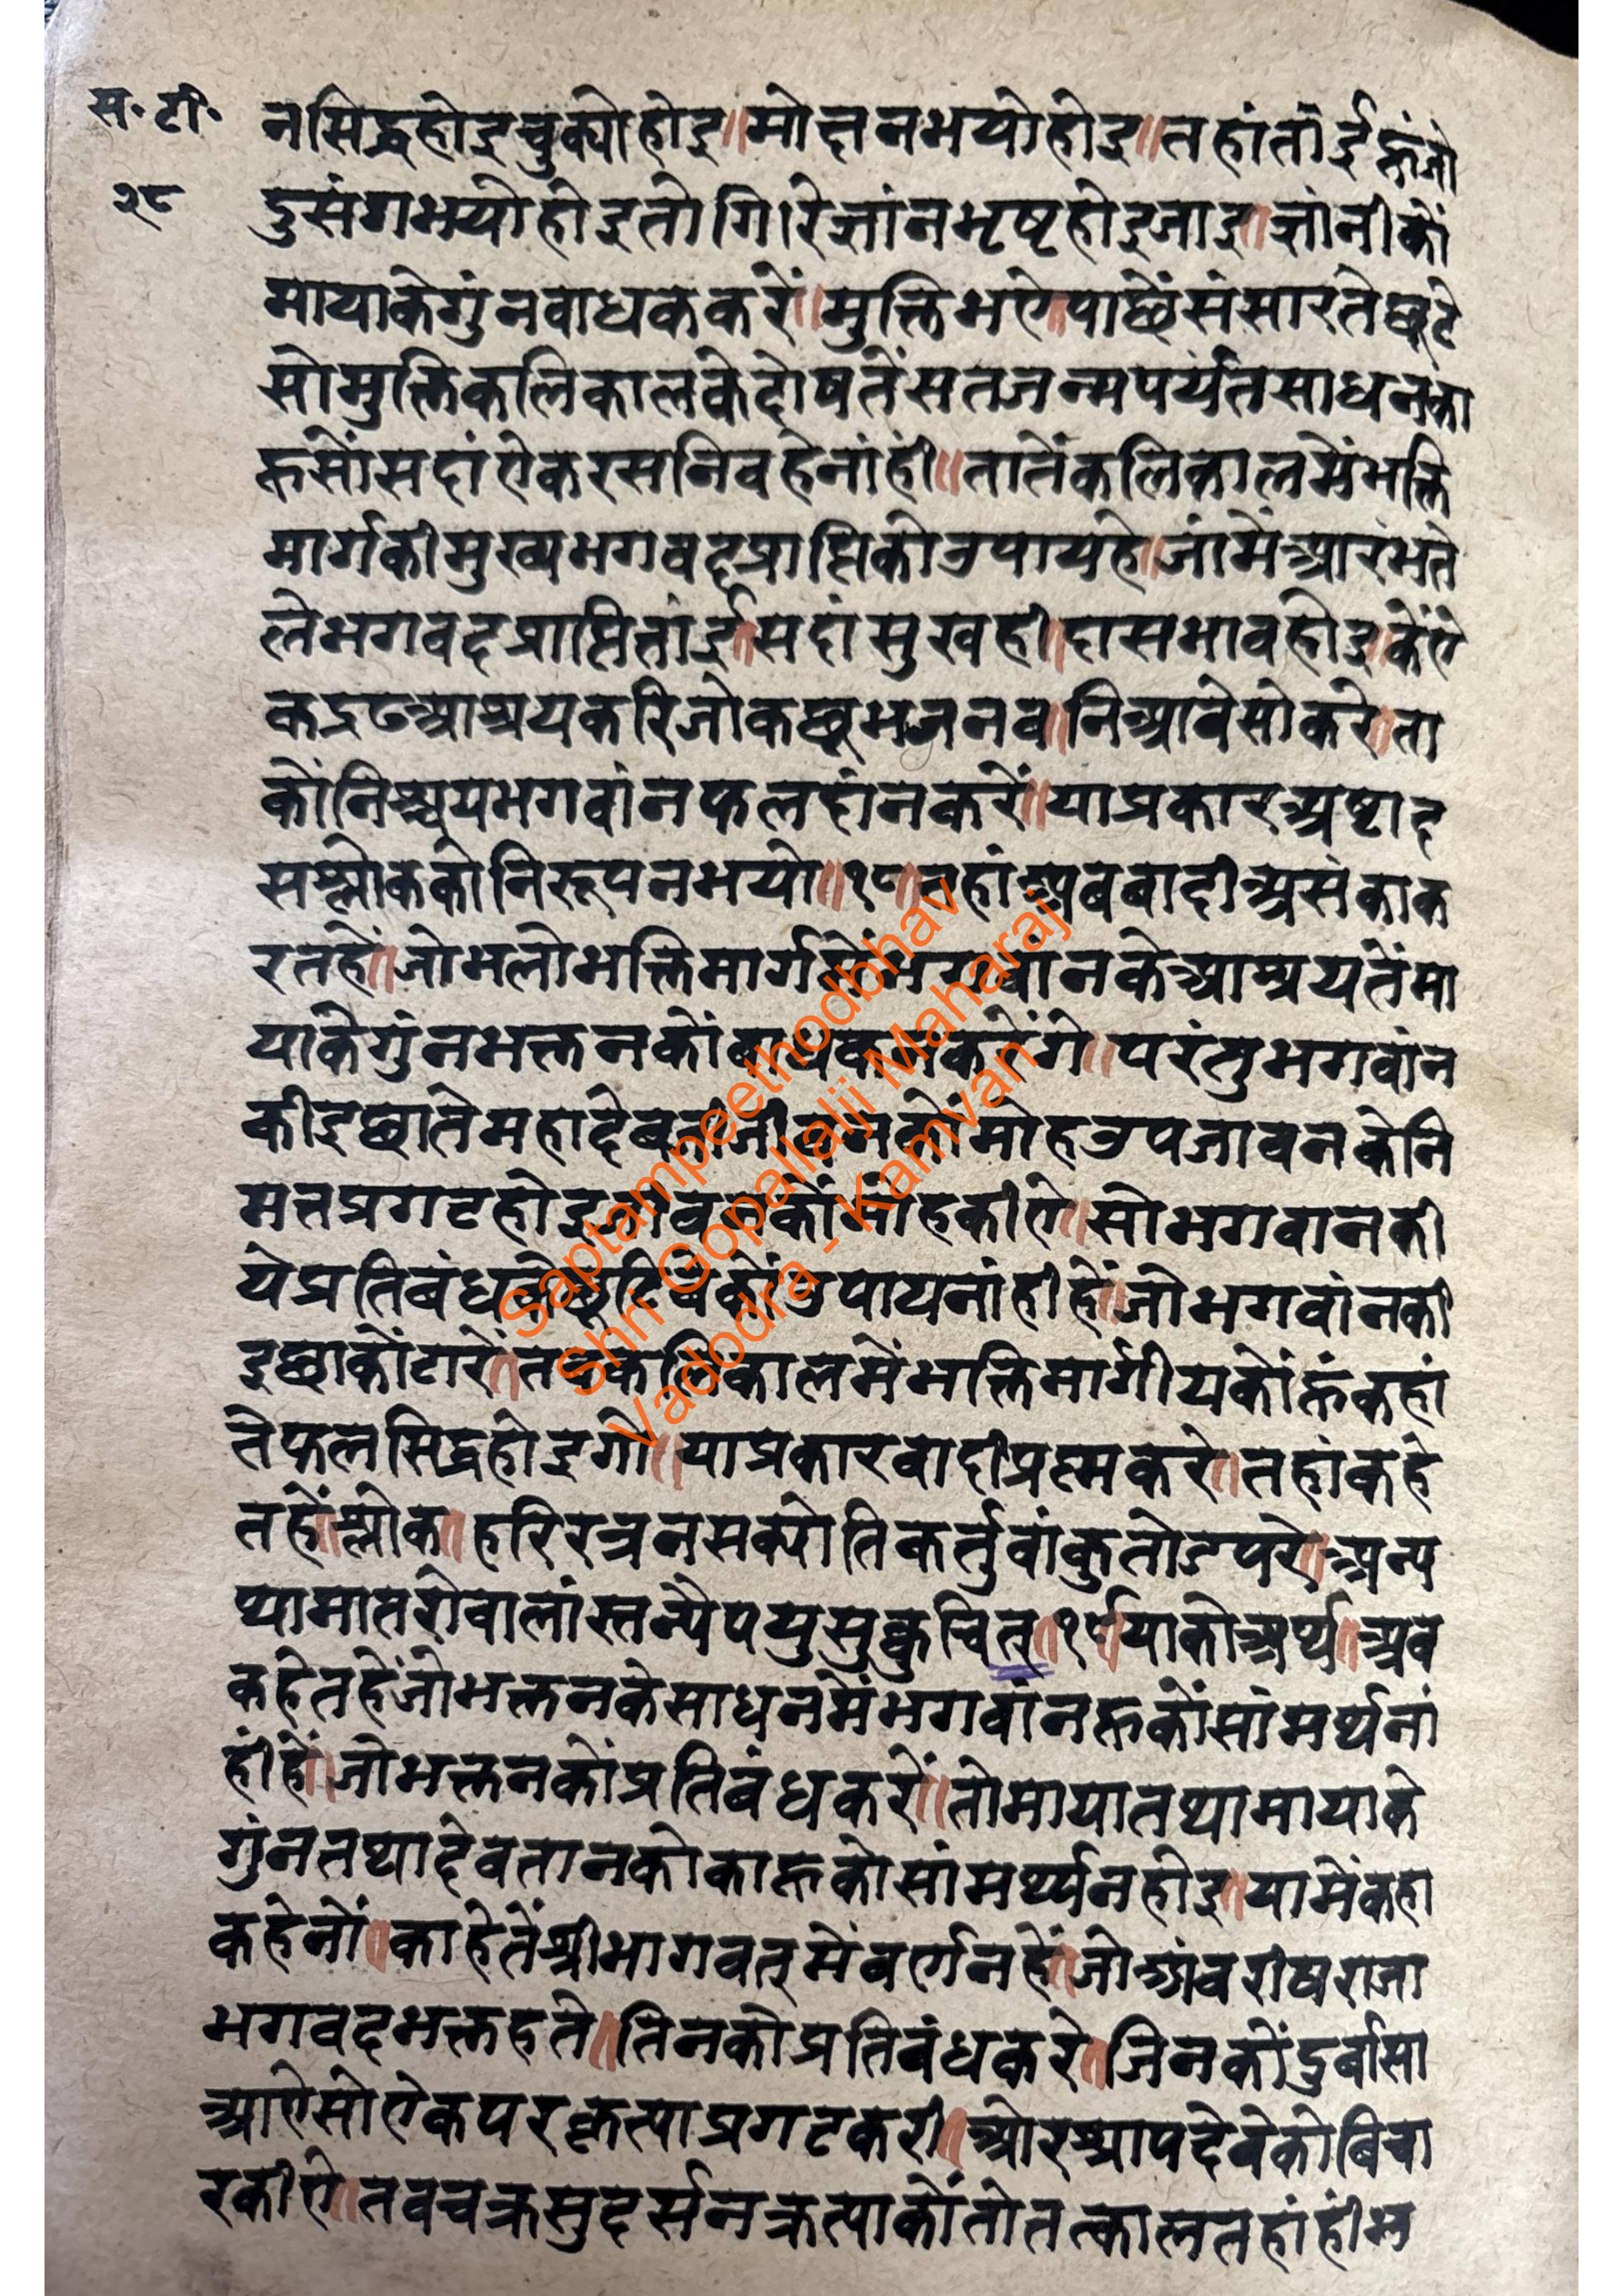 स॰ टी॰
२८
नसिद्धहोइचुक्योहोइ॥मोक्षनभयोहोइ॥तहांतांईहूंजो
दुसंगभयोहोइतोगिरिज्ञांनभृष्टहोइजाइ॥ज्ञांनीकों
मायाकेगुंनबाधककरें॥मुक्तिभऐ॥पाछेंसंसारतेछूटे
सोमुक्तिकलिकालकेदोषतेंसतजन्मपर्यंतसाधनका
हूसोंसदांऐकरसनिवहेनांहीं॥तातेंकलिकालमेंभक्ति
मार्गकीमुख्यभगवद्प्राप्तिकोउपायहे॥जांमेंआरंभते
लेभगवदप्राप्तितांई॥सदांसुखही॥दासभावहोइ॥केंऐ
कद्रढआश्रयकरिजोकछूभजनब॥निआवेसोकरे॥ता
कोंनिश्चयभगवांनफलदांनकरें॥याप्रकारअष्टाद
सश्लोककोनिरूपनभयो॥१८॥तहांअबबादीअसंकाक
रतहें॥जोभलोभक्तिमार्गमेंभगवांनकेआश्रयतेंमा
याकेगुंनभक्तनकोंबाधकनकरेंगे॥परंतुभगवांन
कीइछातेमहादेवजीजीवनकोंमोहउपजावनकेनि
मत्तप्रगटहोइजीवनकोंमोहकीऐ॥सोभगवानकी
येप्रतिबंधतेछूटिवेकोंउपायनांहीहें॥जोभगवांनकी
इछाकोंटारें॥तबकलिकालमेंभक्तिमार्गीयकोंहूंकहां
तेफलसिद्धहोइगो॥याप्रकारवादीप्रश्नकरे॥तहांकहे
तहें॥श्लोक॥हरिरत्रनसक्योतिकर्तुवांकुतोऽपरे॥अन्य
थामातरोवालांस्तन्यैपयुसुकुचित्॥१९॥याकोअर्थ॥अब
कहेतहेंजोभक्तनकेसाधनमेंभगवांनहूकोंसांमर्थनां
हींहें॥जोभक्तनकोंप्रतिबंधकरें॥तोमायातथामायाके
गुंनतथादेवतानकोकाहूकोसांमर्थ्यनहोइ॥यामेंकहा
कहेनों॥काहेतेंश्रीभागवतमेंवर्णनहें॥जोअंबरीषराजा
भगवदभक्तहते॥तिनकोप्रतिबंधकरे॥जिनकोंदुर्बासा
आऐसोऐकपरकृत्याप्रगटकरी॥ओरश्रापदेवेकोबिचा
रकीऐ॥तबचक्रसुदर्सनक्रत्याकोंतोतत्कालतहांहींभ
Saptampeethodbhav
Shri Gopallalji Maharaj
Vadodra - Kamvan